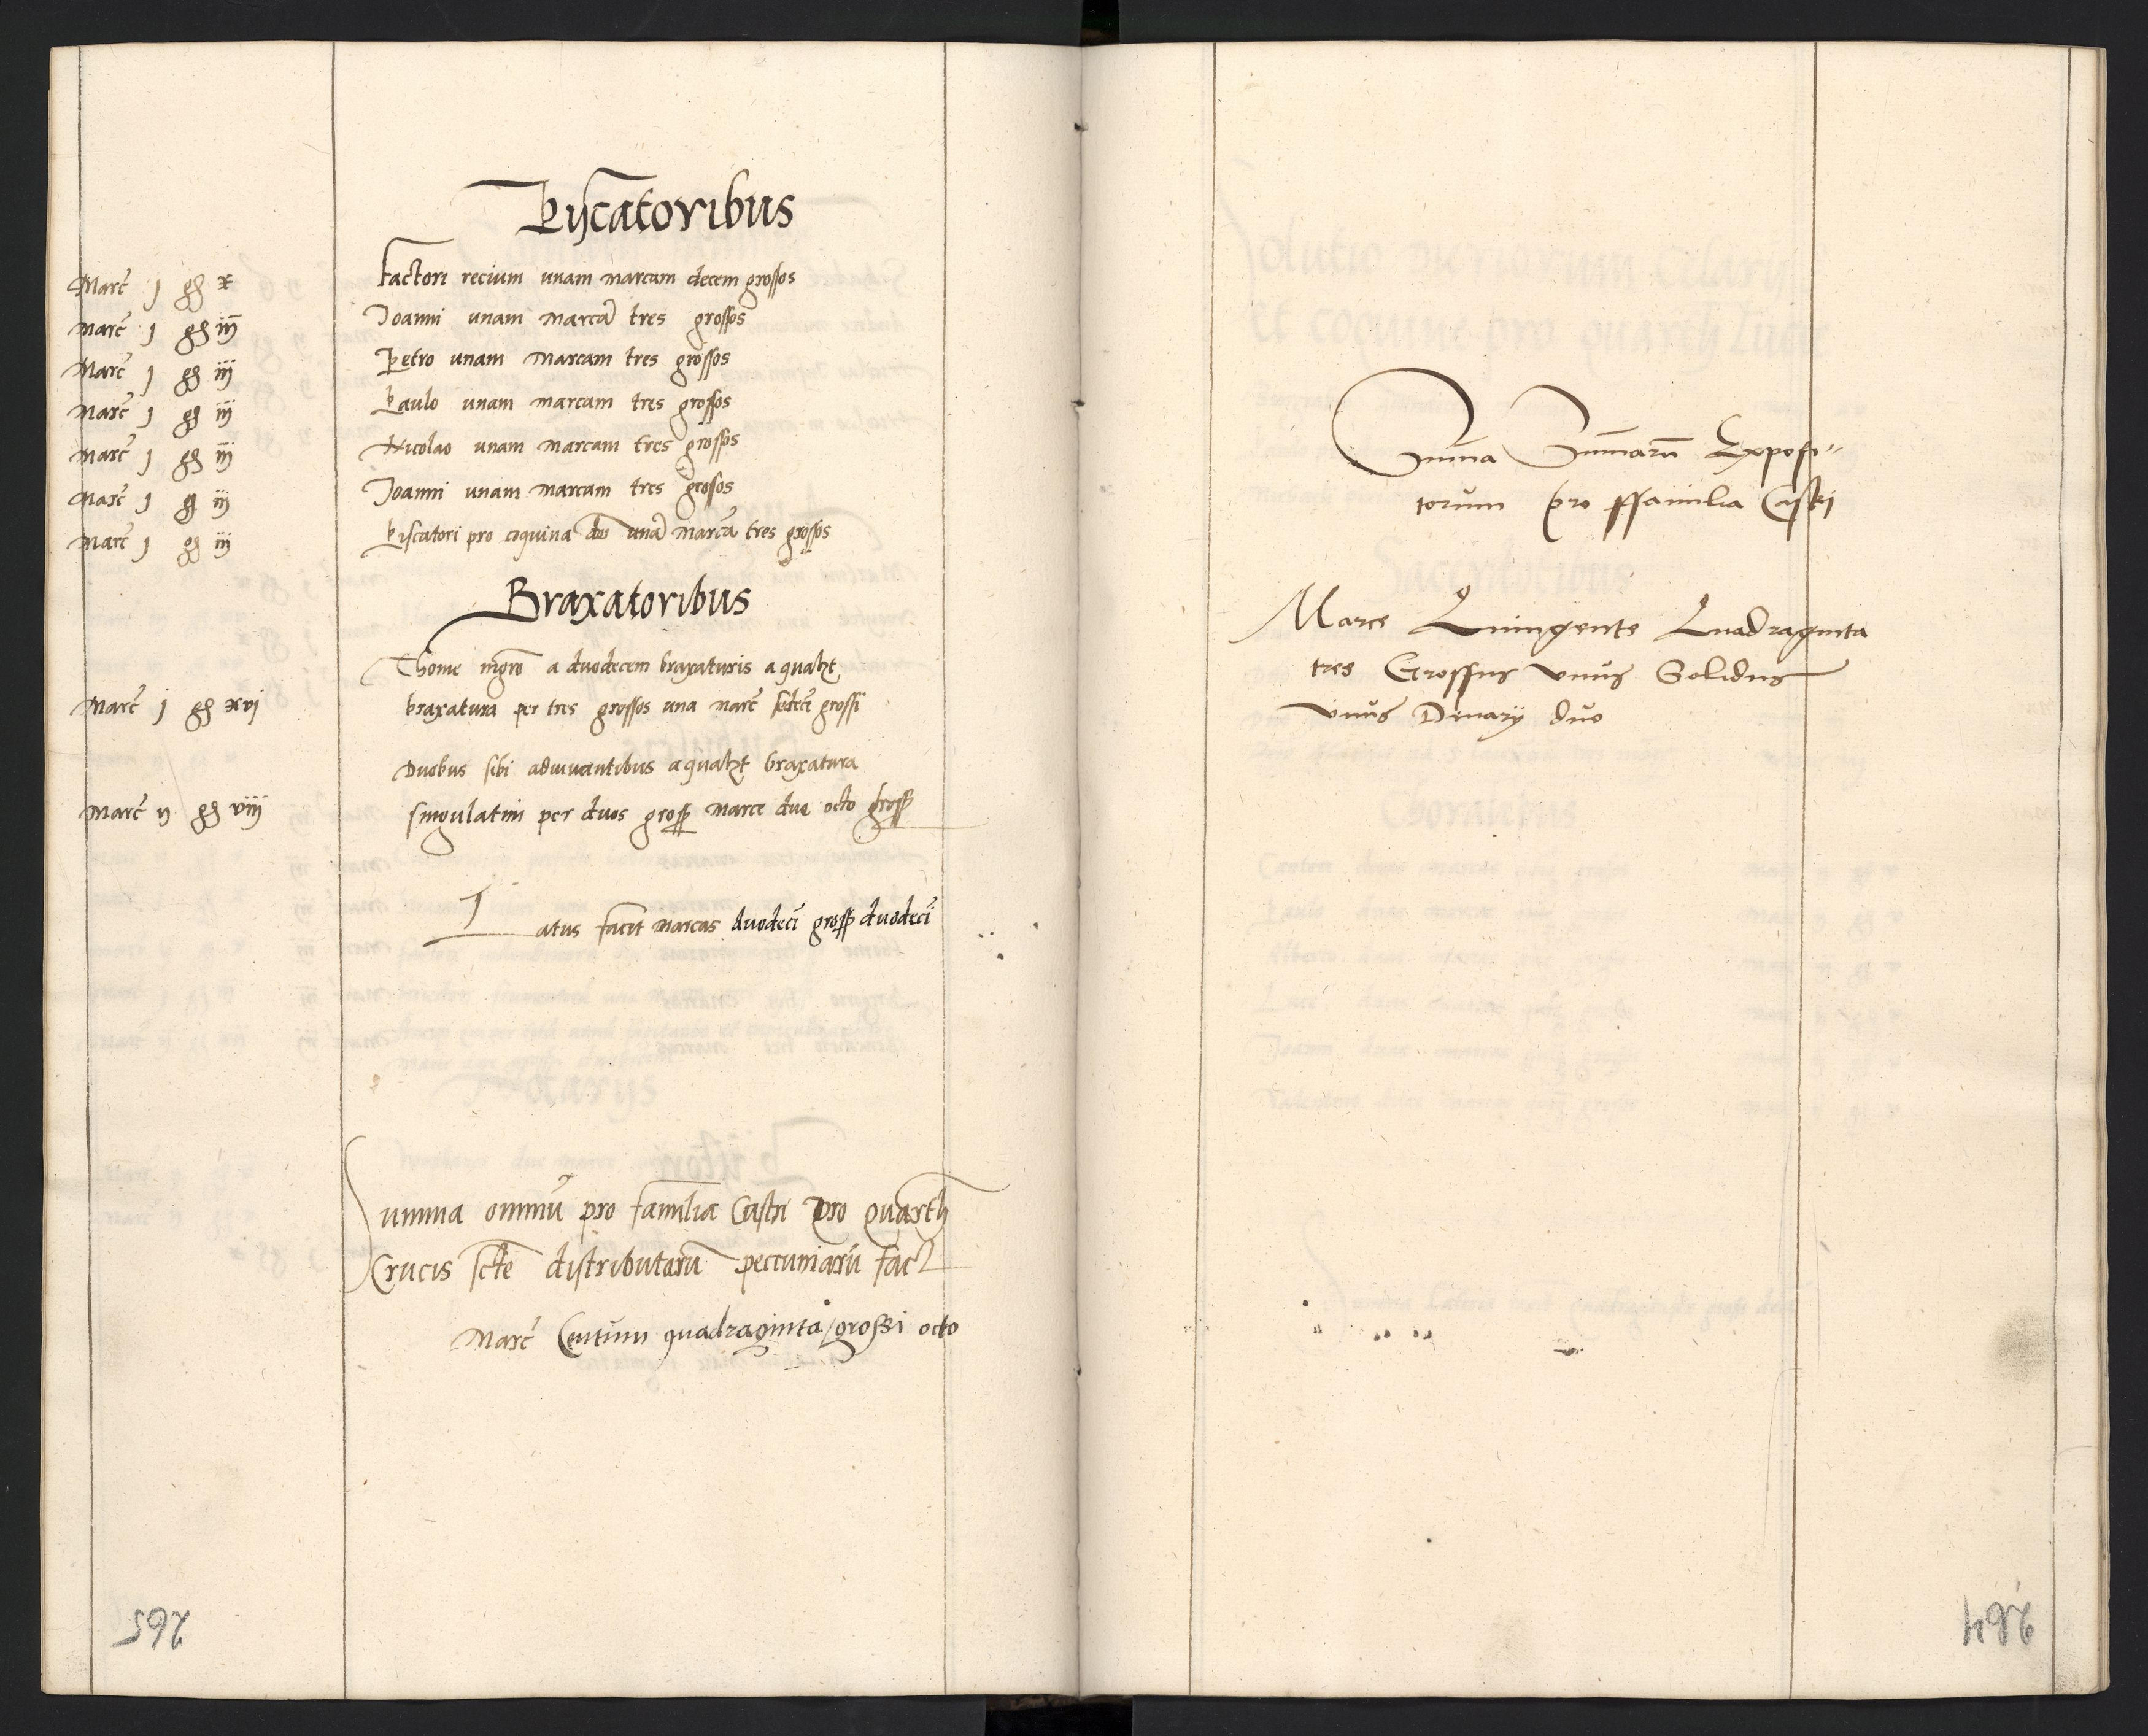 Piscatoribus
Marc̃ j gs x Factori recium unam marcam decem grossos
Marc̃ j gs iij Joanni unam marcã tres grossos
Marc̃ j gs iij Petro unam marcam tres grossos
Marc̃ j gs iij Paulo unam marcam tres grossos
Marc̃ j gs iij Nicolao unam marcam tres grossos
Marc̃ j gs iij Joanni unam marcam tres grossos
Marc̃ j gs iij Piscatori pro coquina unã marcã tres grossos
Braxatoribus
Thome nigro a duodecem braxaturis a qualzt
Marc̃ j gs xvj braxatura per tres grossos una marc̃ sedecĩ grossi
Duobus sibi adiuvantibus a qualzt braxatura
Marc̃ ij gs viij singulatim per duos gross marce due octo gross
Latus facit marcas duodecĩ gross duodecĩ
Summa omniũ pro familia Castri pro quarth
Crucis scte distributarũ peccuniarũ fact
Marc̃ Centum quadraginta / grossi octo
265
Sum̃a Sum̃arũ Exposi〃
torum pro ffamilia Castri
Marce Quingente Quadraginta
tres Grossus vnus Solidus
vnus Denarij duo
264